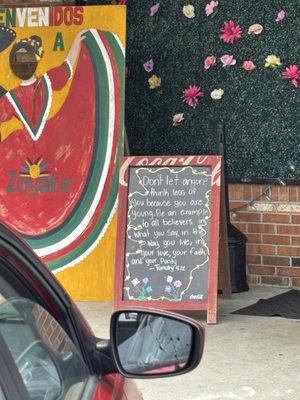 BIENVENIDOS
A
Zoyate
Coca-Cola
Dont let anyone
think less of
you because you are
young. Be an example
to all believers in
what you say, in the
way you live, in
your love, your faith
and your Purity
- Timothy 4:12
Coca-Cola